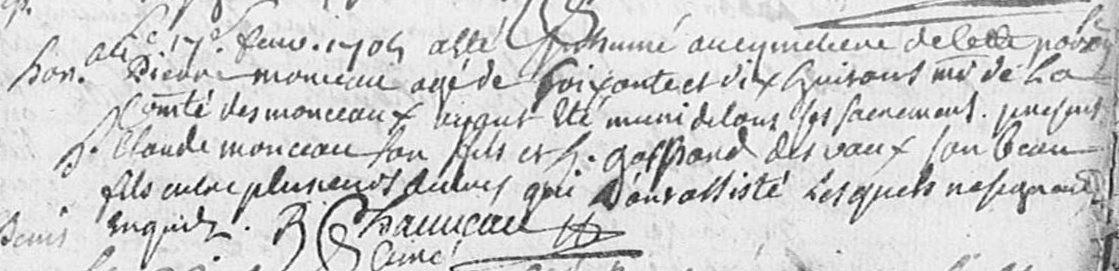 17e. fevr. 1705 a esté inhumé au cymetiere de cette paroisse
hon. Pierre monceau agé de soixante et dix huit ans mr de la
Comté des monceaux ayant été muni de tous ses sacrements. presens
h. Claude monceau son fils et h. gaspard des vaux son beau
fils outre plusieurs autres qui y ont assisté lesquels n'a signé
enquis.
Curé